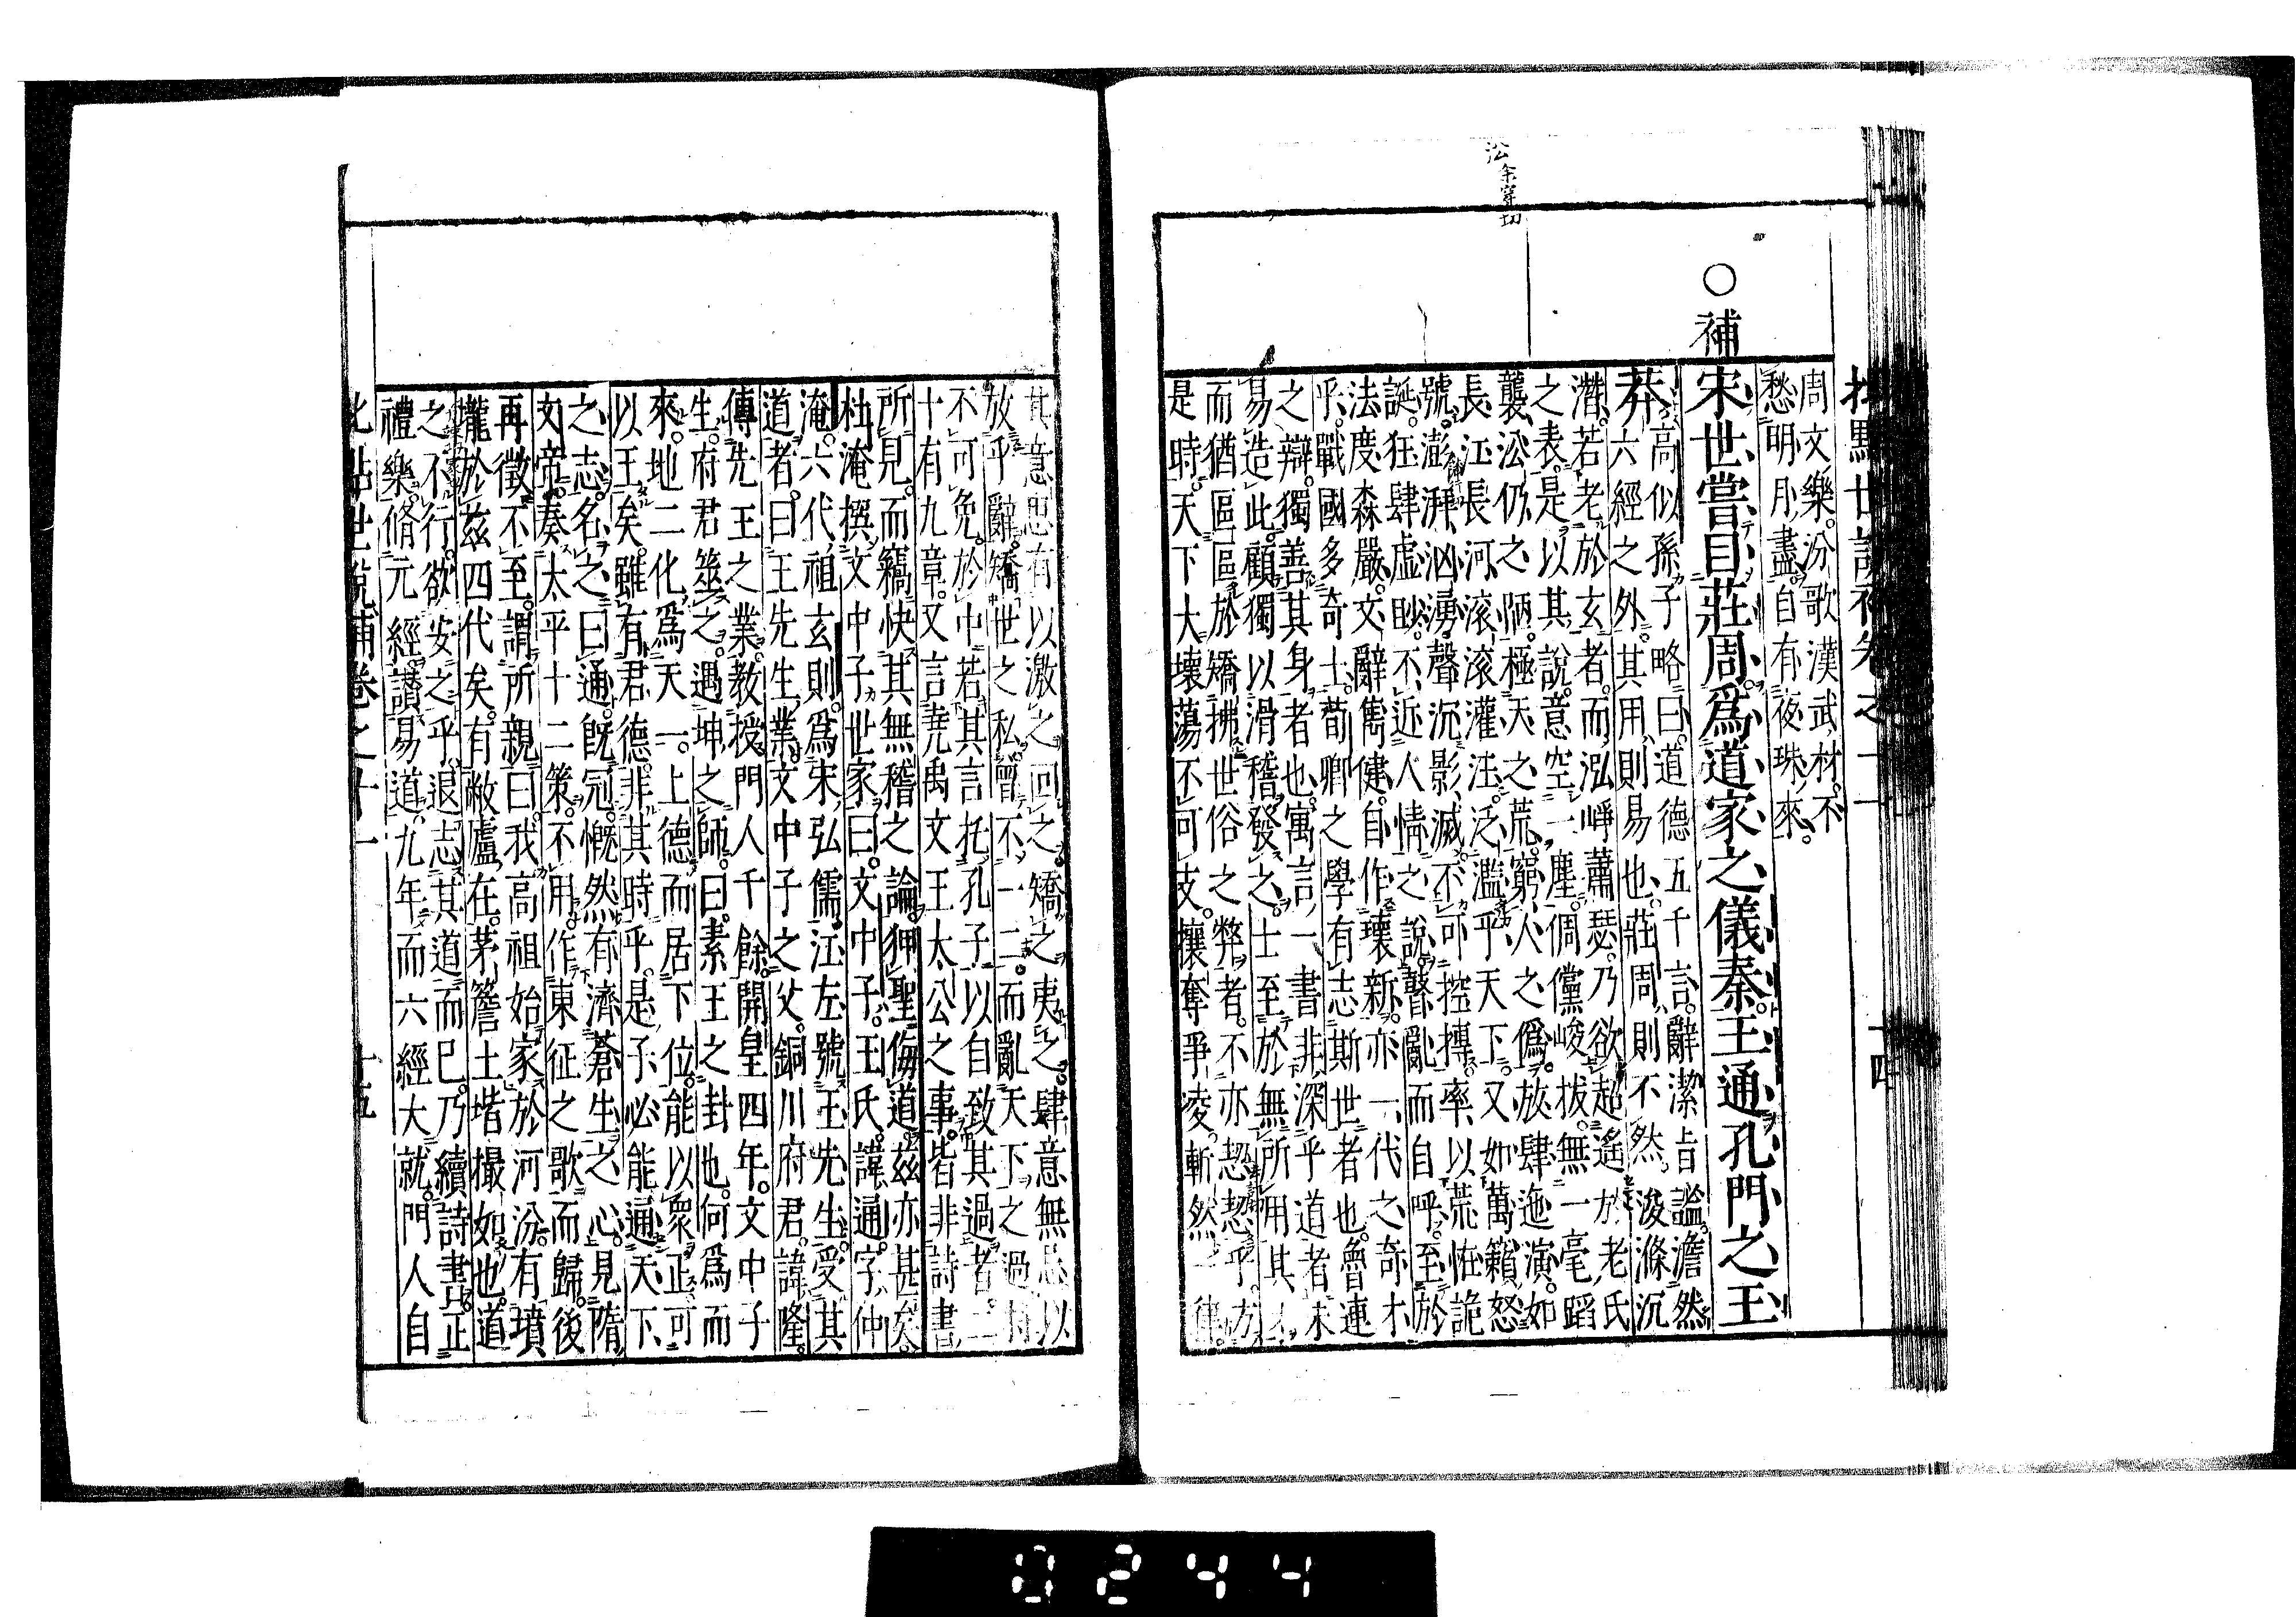 批點世說補卷之十一 十四
周文樂汾歌漢武材不
愁明月盡自有夜珠來
○補
宋世嘗目莊周爲道家之儀秦王通孔門之王
莽高似孫子略曰道德五千言辭潔旨謐澹然
六經之外其用則易也莊周則不然浚滌沉
潛若老於玄者而泓崢蕭瑟乃欲超遙於老氏
之表是以其說意空一塵倜儻峻拔無一毫蹈
襲沿仍之陋極天之荒窮人之僞放肆迤演如
長江長河滚滚灌注泛濫乎天下又如萬籟怒
號澎湃洶湧聲沉影滅不可控摶率以荒恠詭
誕狂肆虛眇不近人情之說瞽亂而自呼至於
法度森嚴文辭雋健自作瓌新亦一代之奇才
乎戰國多奇士荀卿之學有志斯世者也魯連
之辯獨善其身者也寓言一書非深乎道者未
易造此顧獨以滑稽發之士至於無所用其才
而猶區區於矯拂世俗之弊者不亦恝恝乎方
是時天下大壞蕩不可支攘奪爭凌斬然一律
松余穿切
其意思有以激之回之矯之夷之肆意無忌以
放乎辭矯世之私曾不一二而亂天下之過
不可免於中若其言托孔子以自致其過者二
十有九章又言堯禹文王太公之事皆非詩書
所見而竊快其無稽之論狎聖侮道兹亦甚矣
杜淹撰文中子世家曰文中子王氏諱通字仲
淹六代祖玄則爲宋弘儒江左號王先生受其
道者曰王先生業文中子之父銅川府君諱隆
傳先王之業教授門人千餘開皇四年文中子
生府君筮之遇坤之師曰素王之卦也何爲而
來地二化爲天一上德而居下位能以衆正可
以王矣雖有君德非其時乎是子必能通天下
之志名之曰通旣冠慨然有濟蒼生之心見隋
文帝奏太平十二策不用作東征之歌而歸後
再徵不至謂所親曰我高祖始家於河汾有墳
壠於兹四代矣有敝廬在茅簷土堦撮如也道
之不行欲安之乎退志其道而已乃續詩書正
禮樂脩元經讃易道九年而六經大就門人自
批點世說補卷之十一 十五
0244